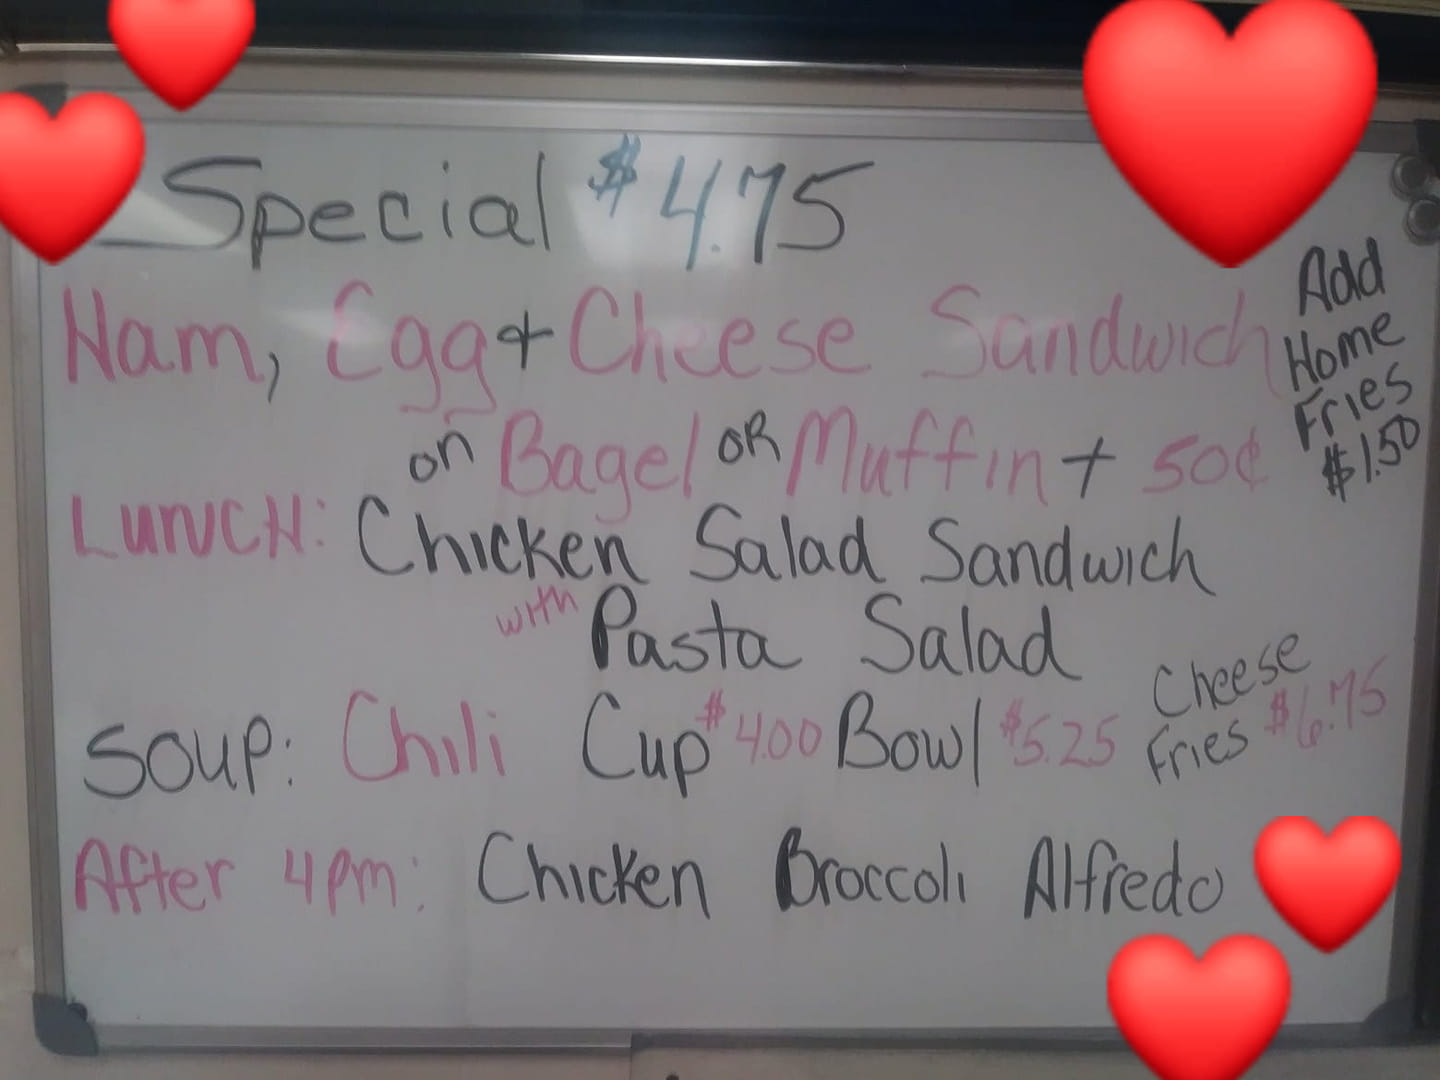 Special $4.75
Ham, Egg + Cheese Sandwich
on Bagel OR Muffin + 50¢
Add
Home
Fries
$1.50
LUNCH: Chicken Salad Sandwich
with Pasta Salad
Soup: Chili Cup $4.00 Bowl $5.25
Cheese
Fries $6.75
After 4pm: Chicken Broccoli Alfredo